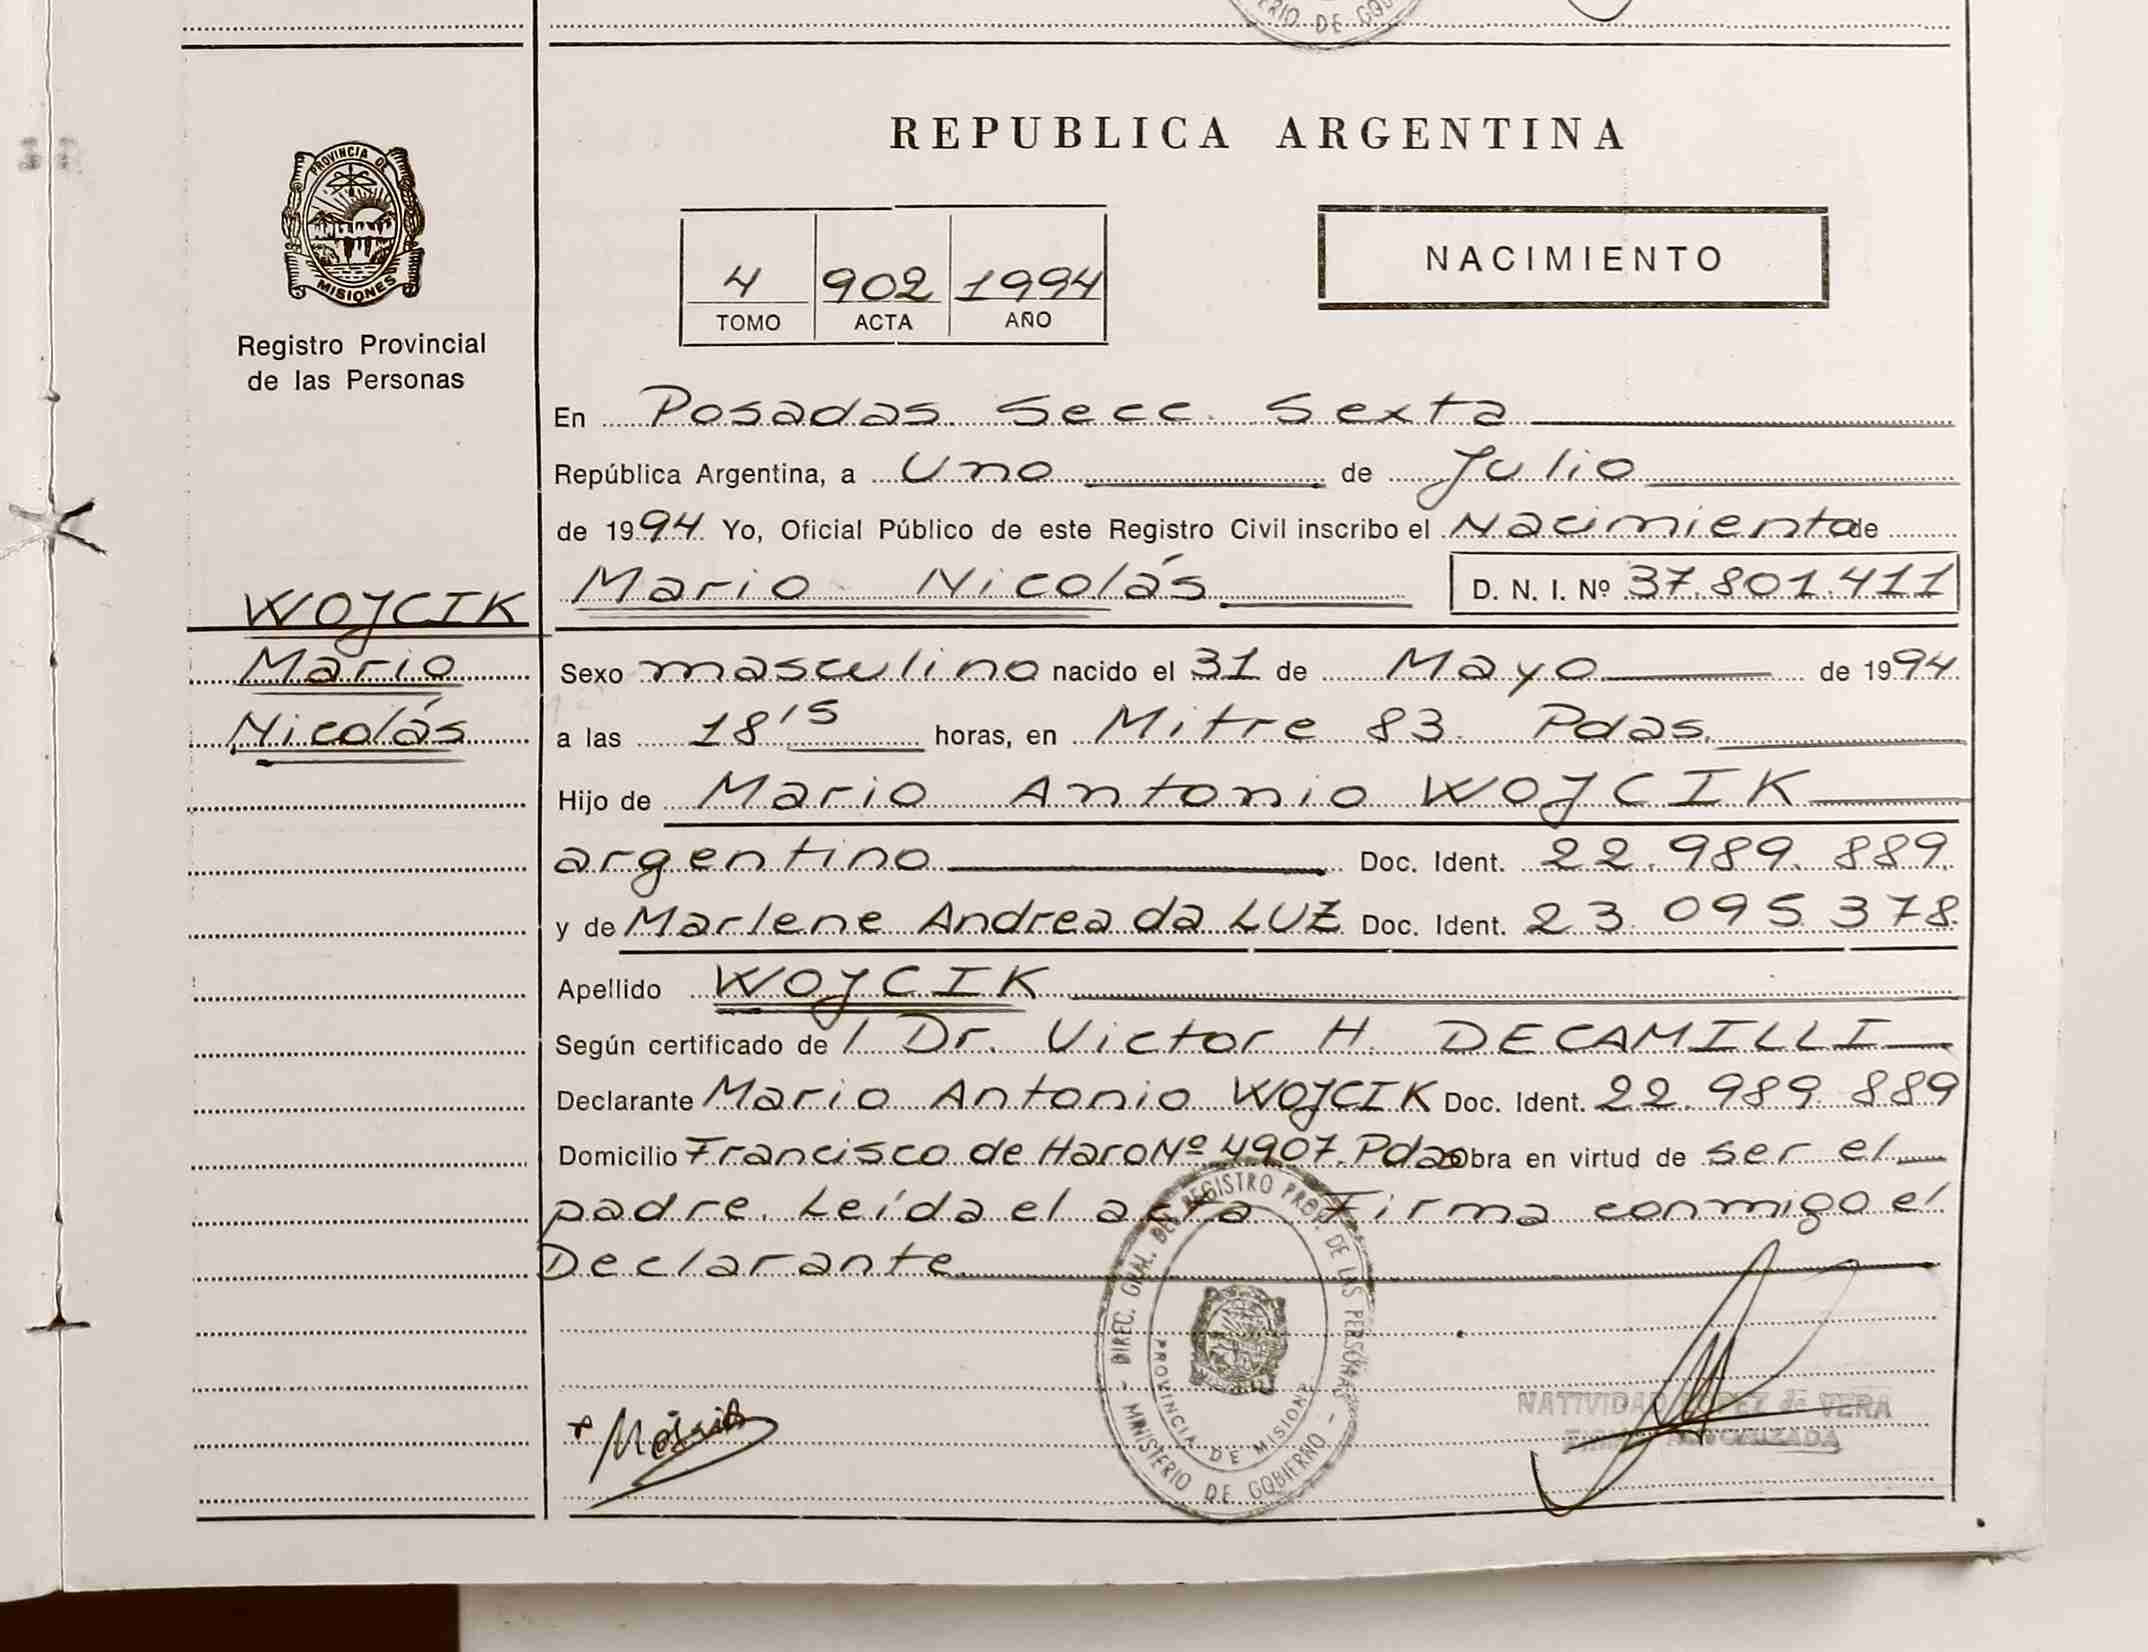 ERIO DE GOB
PROVINCIA DE
MISIONES
Registro Provincial
de las Personas
REPUBLICA ARGENTINA
4 902 1994
TOMO ACTA AÑO
NACIMIENTO
En Posadas Secc. Sexta
República Argentina, a Uno de Julio
de 1994 Yo, Oficial Público de este Registro Civil inscribo el Nacimiento de
WOJCIK Mario Nicolás D. N. I. Nº 37.801.411
Mario Sexo masculino nacido el 31 de Mayo de 1994
Nicolás a las 18 15 horas, en Mitre 83 Pdas.
Hijo de Mario Antonio WOJCIK
argentino Doc. Ident. 22.989.889.
y de Marlene Andrea da LUZ Doc. Ident. 23.095.378.
Apellido WOJCIK
Según certificado de / Dr. Victor H. DECAMILLI
Declarante Mario Antonio WOJCIK Doc. Ident. 22.989.889
Domicilio Francisco de Haro Nº 4907. Pdas Obra en virtud de ser el
padre. Leída el acta Firma conmigo el
Declarante.
DIREC. GRAL. DEL REGISTRO PROV. DE LAS PERSONAS
PROVINCIA DE MISIONES
- MINISTERIO DE GOBIERNO -
NATIVIDAD LOPEZ de VERA
FIRMA AUTORIZADA